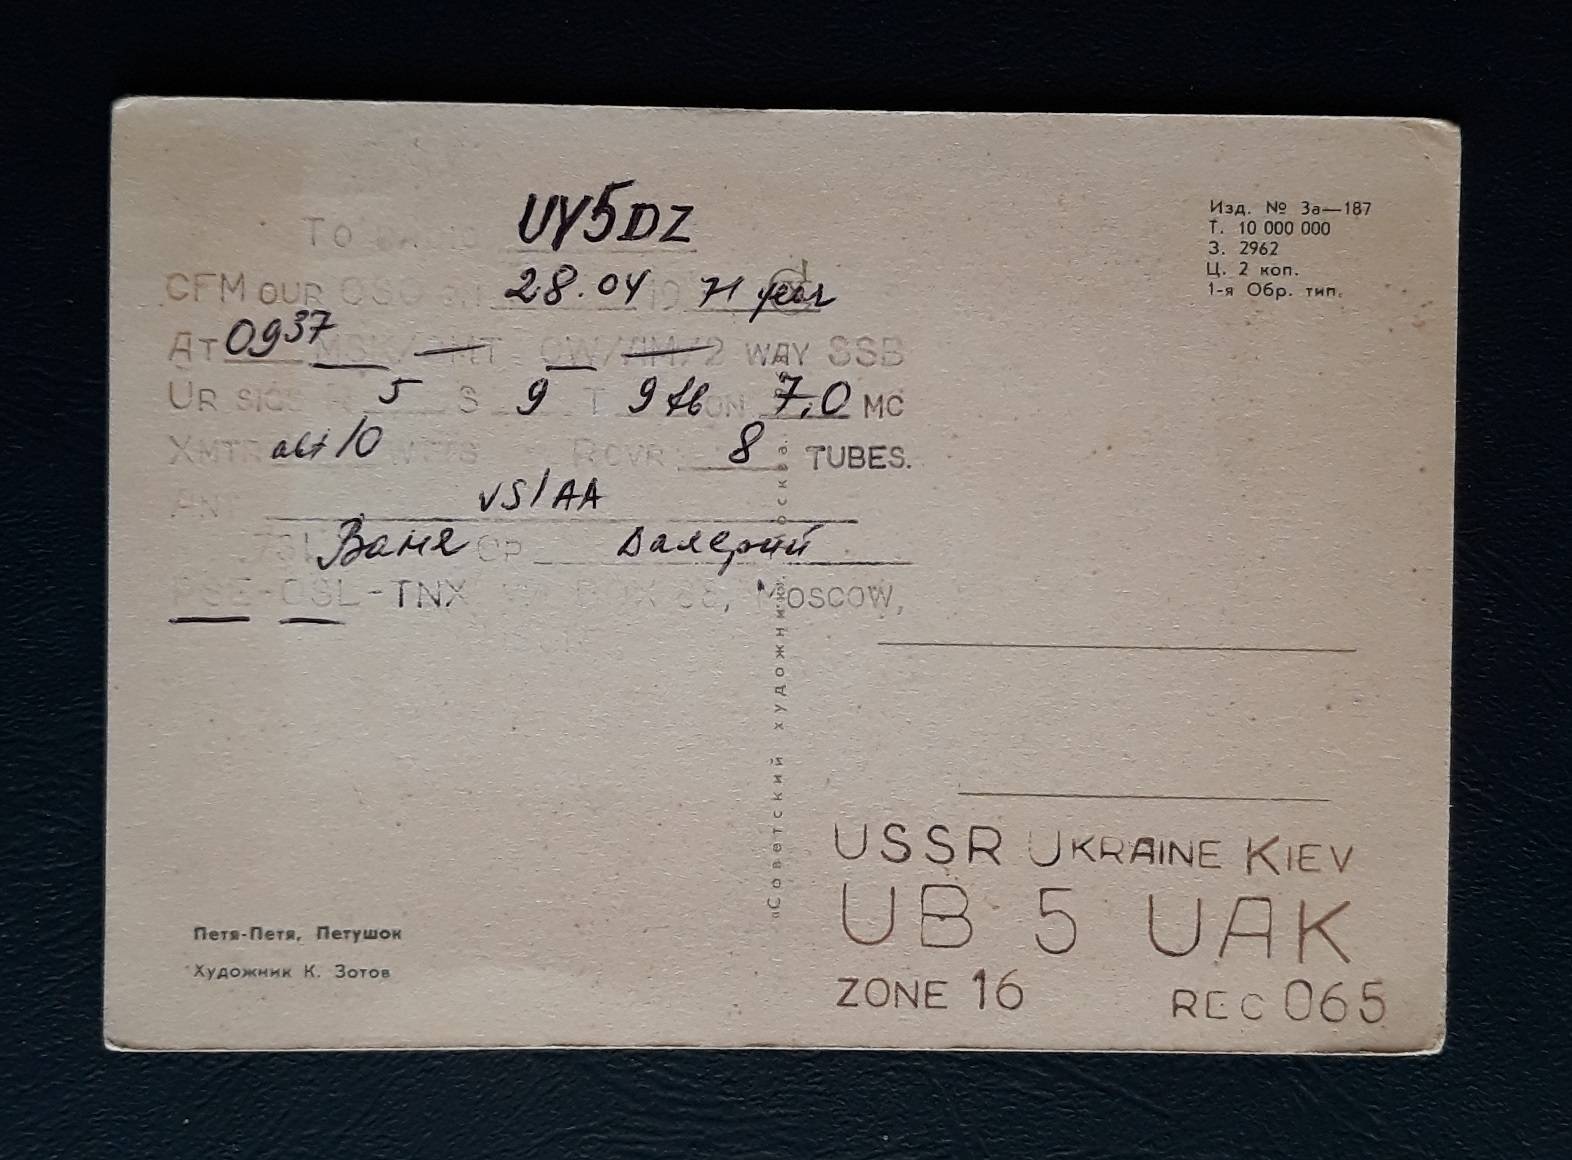 To RADIO UY5DZ
CFM OUR QSO ON 28.04 19 71 year
AT 0937 MSK/GMT CW/AM/2 WAY SSB
UR SIGS R 5 S 9 T 9 ON 7,0 MC
XMTR 10 WTTS RCVR 8 TUBES.
ANT VS1AA
73! Ваня OP Валерий
PSE-QSL-TNX VIA BOX 88, MOSCOW,
Изд. № 3а—187
Т. 10 000 000
З. 2962
Ц. 2 коп.
1-я Обр. тип.
«Советский художник». Москва.
USSR UKRAINE KIEV
UB 5 UAK
ZONE 16 REG 065
Петя-Петя, Петушок
Художник К. Зотов